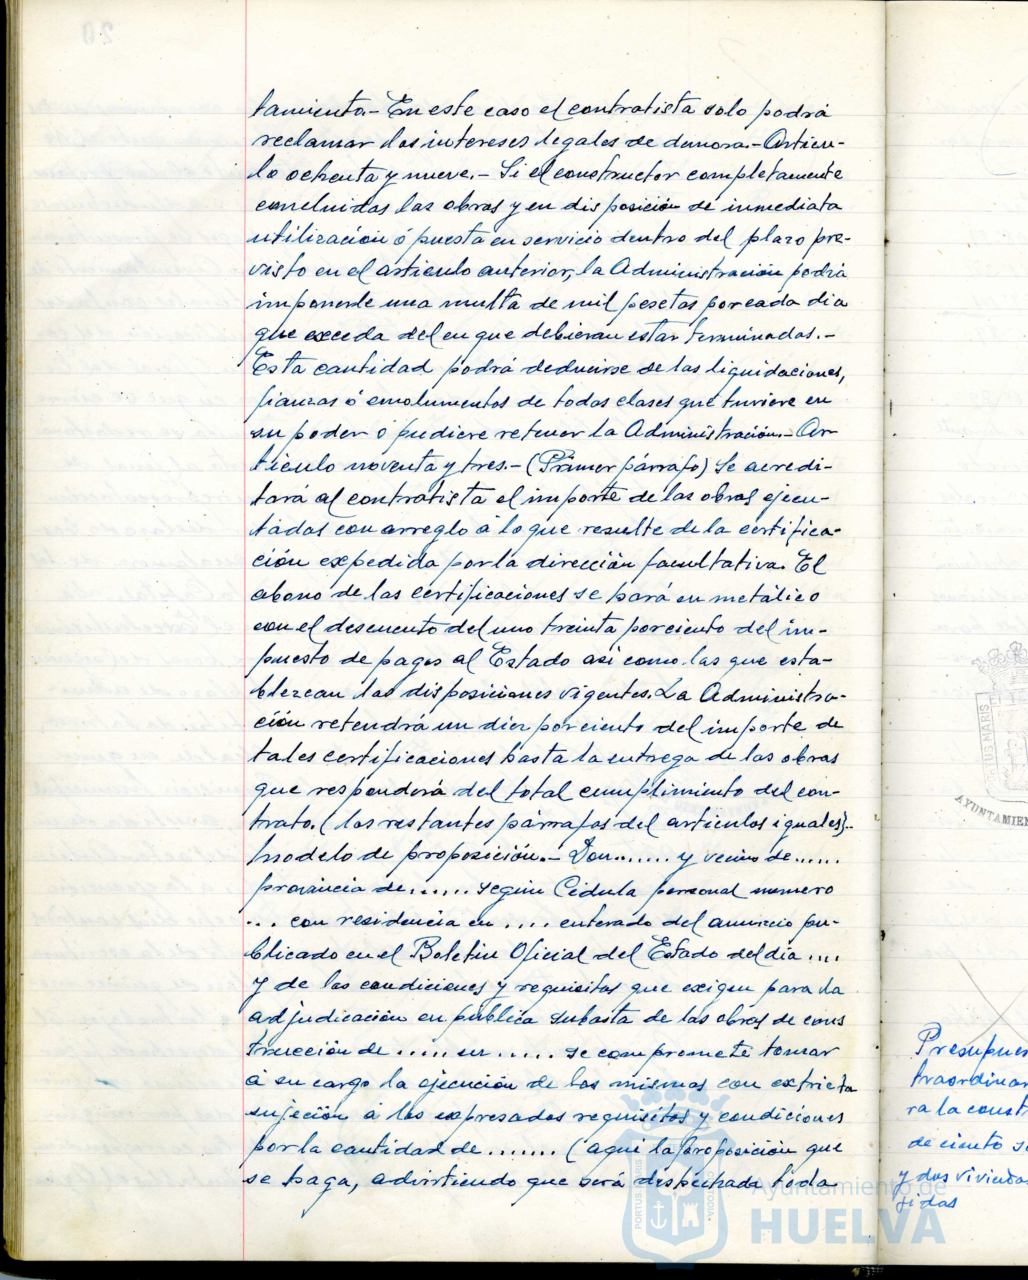 tamiento.- En este caso el contratista solo podrá
reclamar los intereses legales de demora.- Articu-
lo ochenta y nueve.- Si el constructor completamente
concluidas las obras y en disposición de inmediata
utilización ó puesta en servicio dentro del plazo pre-
visto en el articulo anterior, la Administración podrá
imponerle una multa de mil pesetas por cada dia
que exceda del en que debieran estar terminadas.-
Esta cantidad podrá deducirse de las liquidaciones,
fianzas ó emolumentos de todas clases que tuviere en
su poder ó pudiere retener la Administración.- Ar-
ticulo noventa y tres.- (Primer párrafo) Se acredi-
tará al contratista el importe de las obras ejecu-
tadas con arreglo á lo que resulte de la certifica-
ción expedida por la dirección facultativa. El
abono de las certificaciones se hará en metálico
con el descuento del uno treinta por ciento del im-
puesto de pagos al Estado asi como las que esta-
blezcan las disposiciones vigentes. La Administra-
ción retendrá un diez por ciento del importe de
tales certificaciones hasta la entrega de las obras
que responderá del total cumplimiento del con-
trato. (los restantes párrafos del articulos iguales).-
Modelo de proposición.- Don....... y vecino de......
provincia de...... según Cédula personal numero
... con residencia en .... enterado del anuncio pu-
blicado en el Boletin Oficial del Estado del dia ....
y de las condiciones y requisitos que exigen para la
adjudicación en publica subasta de las obras de cons
trucción de ..... en ...... se compromete tomar
á su cargo la ejecución de las mismas con extricta
sujeción á los expresados requisitos y condiciones
por la cantidad de ....... (aqui la proposición que
se haga, advirtiendo que será desechada toda
Presupues
traordinar
ra la const
de ciento s
y dos viviendas
gidas
TUS MARIS
AYUNTAMIEN
PORTUS MARIS
CUSTODIA
Ayuntamiento de
HUELVA